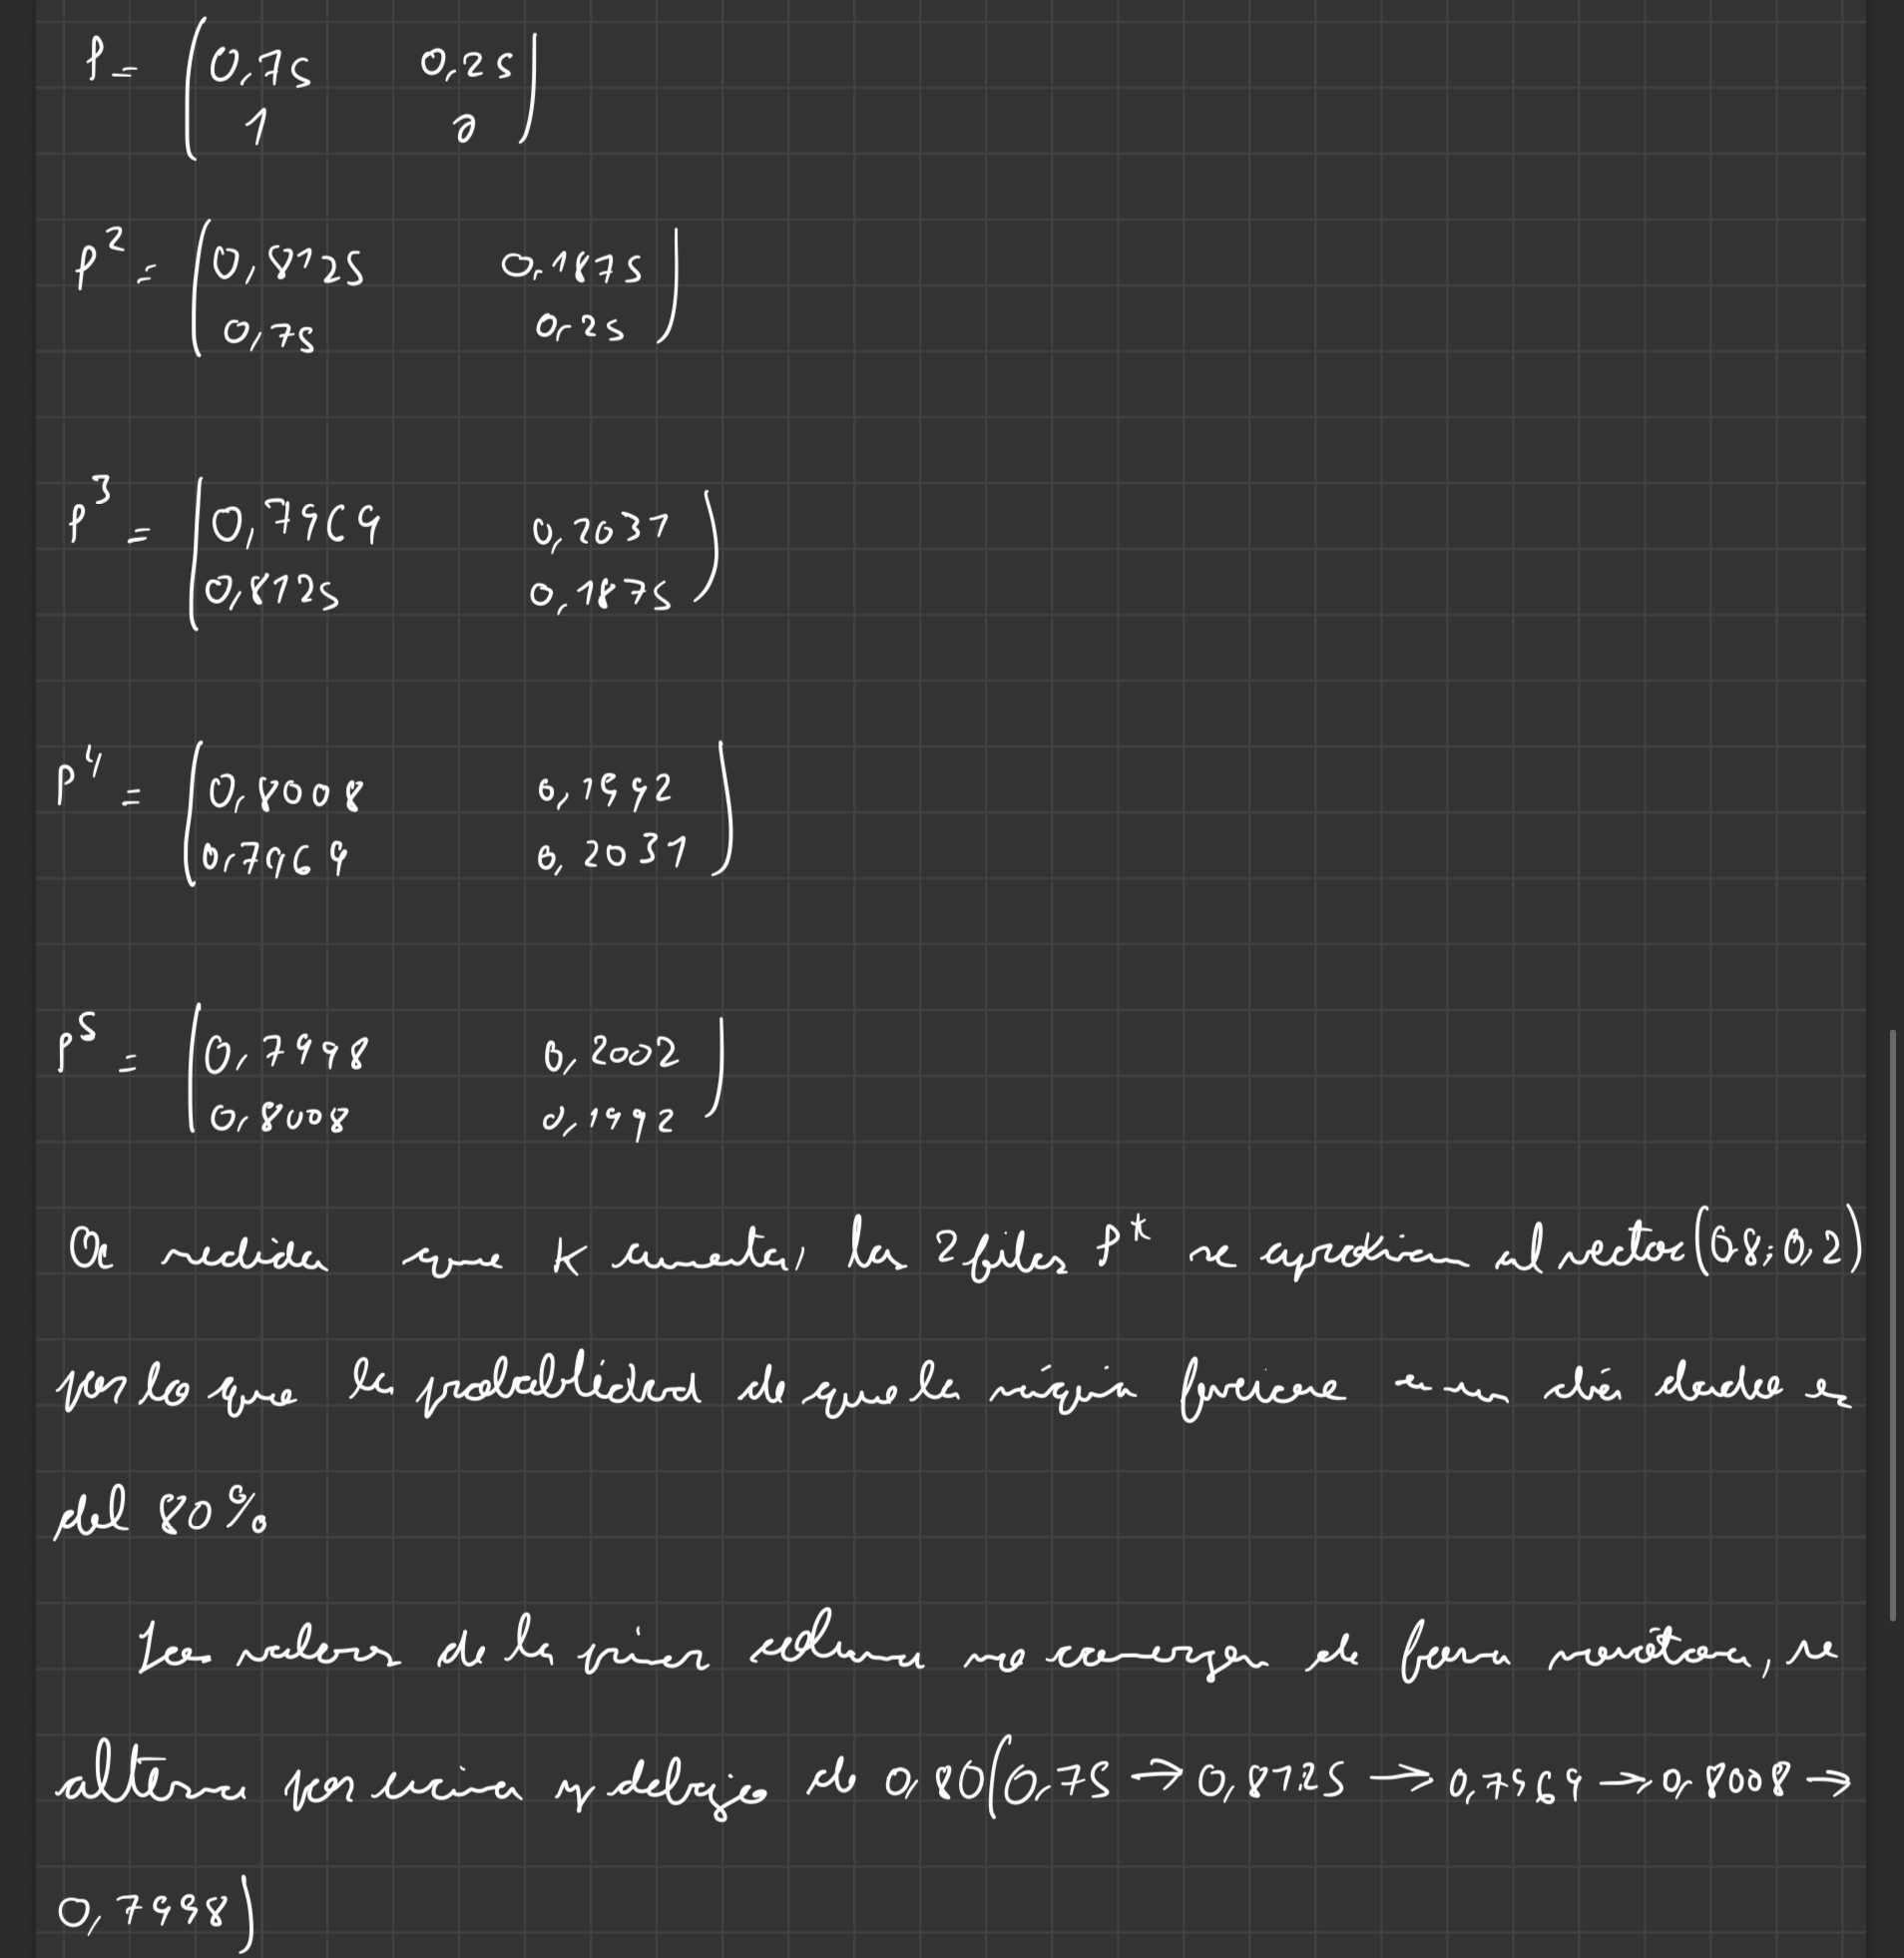 P = (0,75 0,25
1 0)
P² = (0,8125 0,1875
0,75 0,25)
P³ = (0,7969 0,2031
0,8125 0,1875)
P⁴ = (0,8008 0,1992
0,7969 0,2031)
P⁵ = (0,7998 0,2002
0,8008 0,1992)
A medida que K aumenta, las 2 filas P^k se aproximan al vector (0,8; 0,2)
por lo que la probabilidad de que la máquina funcione en un día dado es
del 80%
Los valores de la primera columna no convergen de forma monótona, se
alterna por encima y debajo de 0,80 (0,75 → 0,8125 → 0,7969 → 0,8008 →
0,7998)